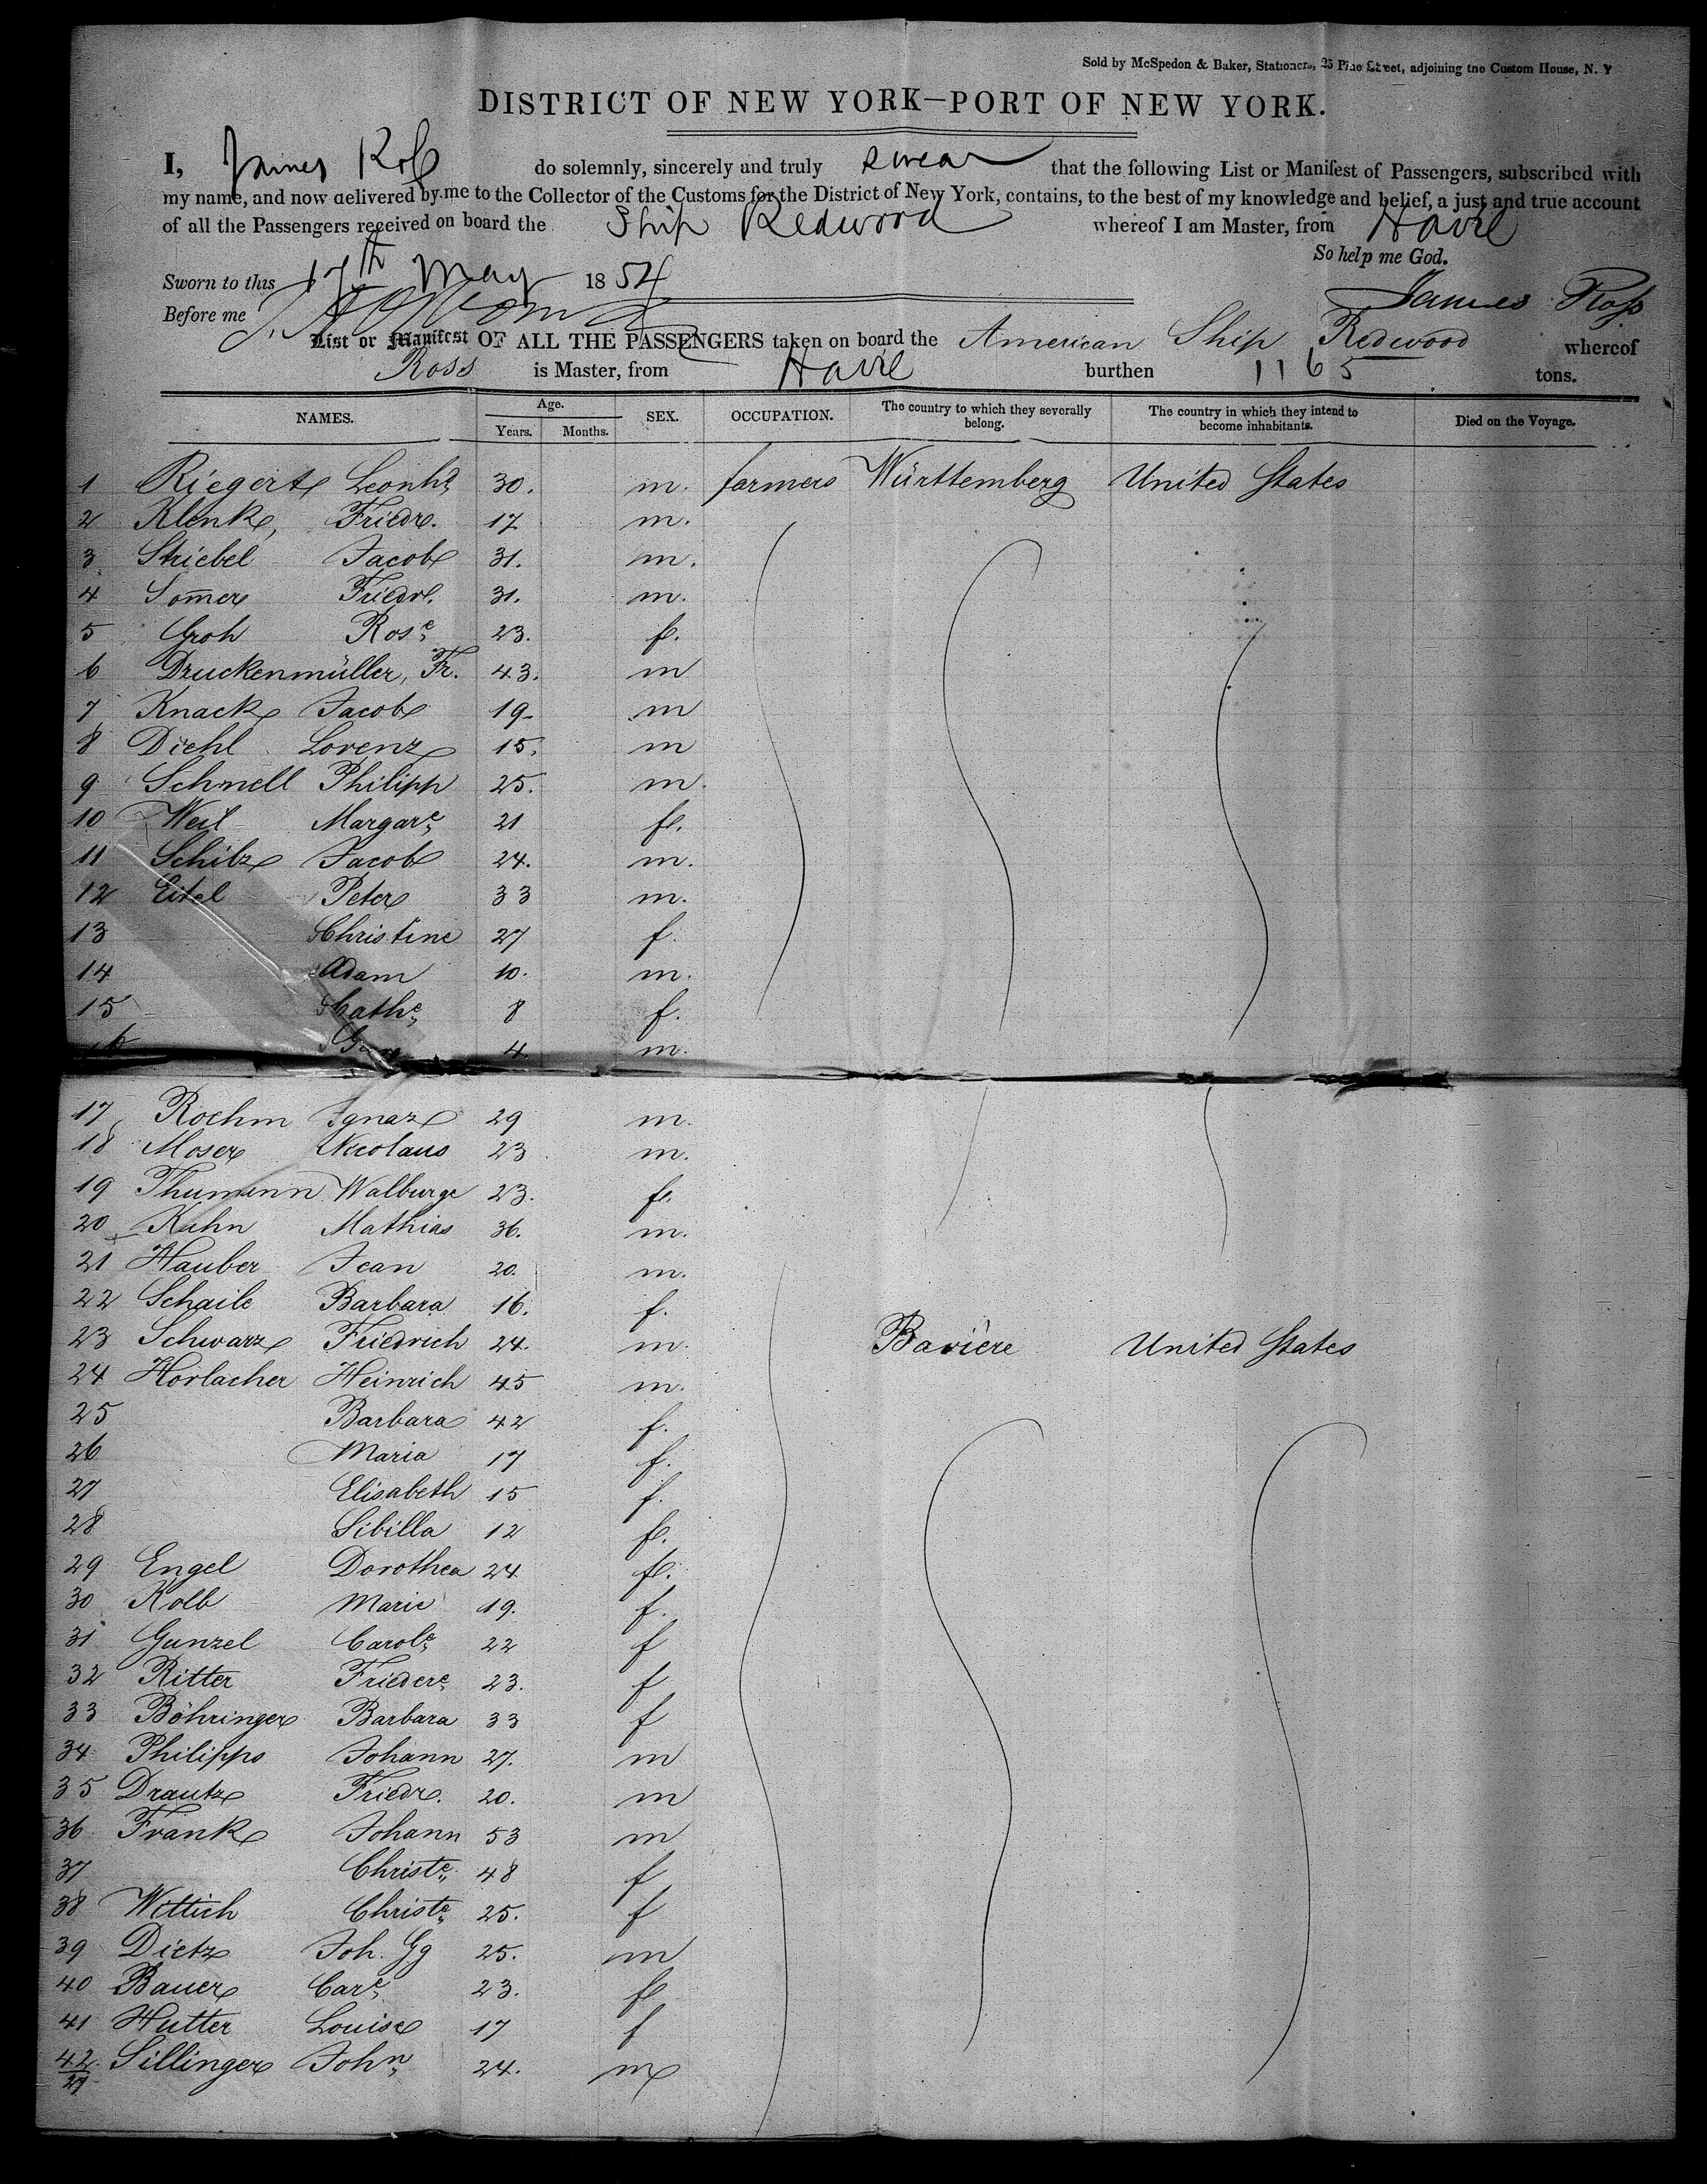 Sold by McSpedon & Baker, Stationers, 25 Pine Street, adjoining the Custom House, N. Y
DISTRICT OF NEW YORK—PORT OF NEW YORK.
I, James Roß do solemnly, sincerely and truly swear that the following List or Manifest of Passengers, subscribed with
my name, and now delivered by me to the Collector of the Customs for the District of New York, contains, to the best of my knowledge and belief, a just and true account
of all the Passengers received on board the Ship Redwood whereof I am Master, from Havre
So help me God.
Sworn to this 17th May 1854
James Roß
Before me
List or Manifest OF ALL THE PASSENGERS taken on board the American Ship Redwood whereof
Ross is Master, from Havre burthen 1165 tons.
NAMES. Age. SEX. OCCUPATION. The country to which they severally belong. The country in which they intend to become inhabitants. Died on the Voyage.
Years. Months.
1 Riegert Leonhd 30. m. farmers Württemberg United States
2 Klenk, Friedr. 17 m.
3 Striebel Jacob 31. m.
4 Som̄er Friedr. 31. m.
5 Groh Rose 23. f.
6 Druckenmüller, Fr. 43. m
7 Knack Jacob 19 m
8 Diehl Lorenz 15. m
9 Schnell Philipp 25. m.
10 Weil Margare 21 f.
11 Schilz Jacob 24. m.
12 Eitel Peter 33 m.
13 Christine 27 f.
14 Adam 10. m.
15 Cathe 8 f.
16 4. m.
17 Roehm Ignaz 29 m.
18 Moser Nicolaus 23 m.
19 Thumann Walburge 23. f.
20 Kuhn Mathias 36. m.
21 Hauber Jean 20. m.
22 Schaile Barbara 16. f.
23 Schwarz Friedrich 24. m. Bavière United States
24 Horlacher Heinrich 45 m.
25 Barbara 42 f.
26 Maria 17 f.
27 Elisabeth 15 f.
28 Sibilla 12 f.
29 Engel Dorothea 24 f.
30 Kolb Marie 19. f.
31 Gunzel Carole 22 f
32 Ritter Friedere 23. f
33 Böhringer Barbara 33 f
34 Philipps Johann 27. m
35 Drautz Friedr. 20. m
36 Frank Johann 53 m
37 Christe 48 f
38 Wittich Christe 25. f
39 Dietz Joh. Gg 25. m
40 Bauer Care 23. f
41 Hutter Louise 17 f
42 Sillinger John 24. m
21